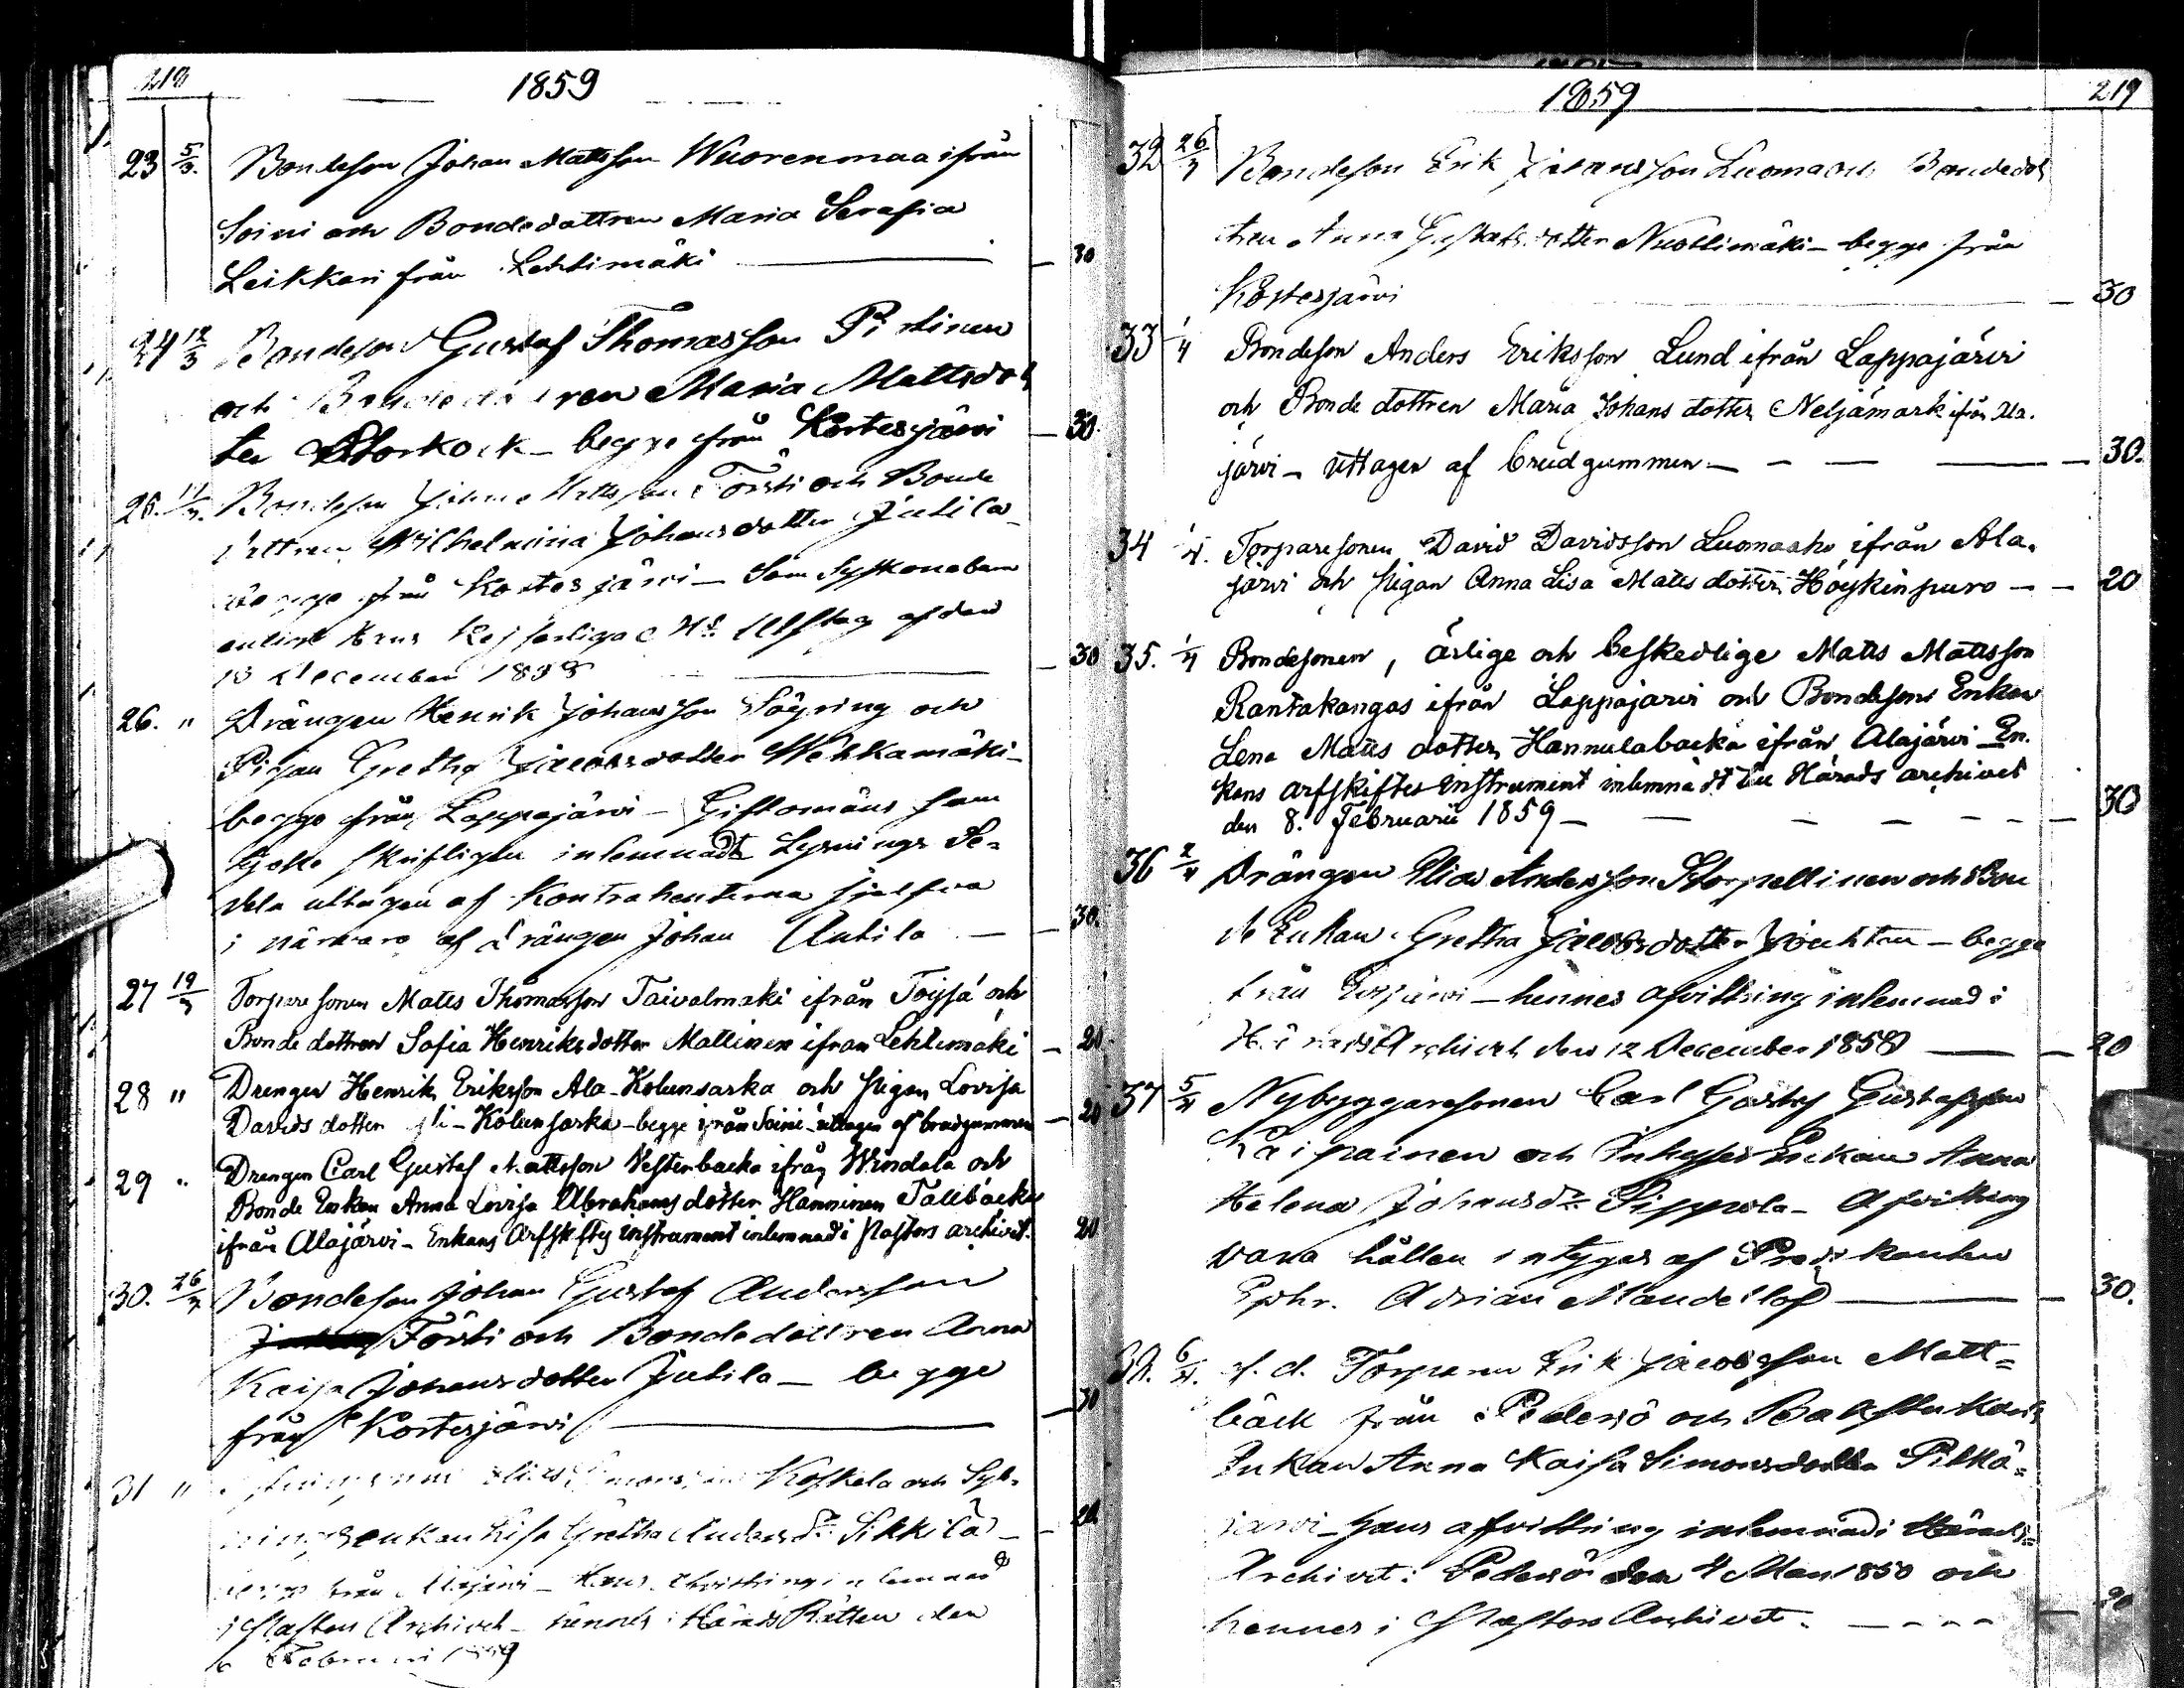 218
1859
23 5/3. Bondeson Johan Mattsson Wuorenmaa ifrån
Soini och Bondedottren Maria Serafia
Leikkari från Lehtimäki — 30
24 12/3 Bondeson Gustaf Thomasson
och Maria Mattsdot
ter Storkock – begge från Kortesjärvi — 30.
25. Bondeson Törsti och Bonde
dottren Wilhelmina Johansdotter Jutila –
begge från Kortesjärvi – Som Syskonebarn
enligt Hans Kejserliga Utslag af den
13 December 1858 — 30
26. " Drängen Henrik Johansson Sägring och
Pigan Gretha Jacobsdotter Wehkamäki –
begge från Lappajärvi – Giftomäns sam
tycke skriftligen inlemnadt Lysnings Se=
dela uttagen af Kontrahenterna sjelfva
i närvaro af Drängen Johan Antila — 30.
27 19/3 Torpare sonen Matts Thomasson Taivalmäki ifrån Töysä och
Bonde dottren Sofia Henriks dotter Mattinen ifrån Lehtimäki — 20.
28 " Drengen Henrik Eriksson Ala-Kolunsarka och pigan Lovisa
Davids dotter Yli-Kolunsarka – begge ifrån Soini – uttagen af brudgummen — 20
29 " Drengen Carl Gustaf Mattsson Vestenbacka ifrån Windala och
Bonde Enkan Anna Lovisa Abrahams dotter Hanninen Tallbacka
ifrån Alajärvi – Enkans Arfskiftes instrument inlemnad i Pastors archivet. 20
30. 26/3 Bondeson Johan Gustaf Andersson
Törsti och Bondedottren Anna
Kaisa Johansdotter Jutila – begge
från Kortesjärvi — 30
31 " Koskela och
enkan Lisa Gretha Andersdr Sikkilä – 20
från – Hans afvittring inlemnad
i Pastors Archivet – hennes i Härads Rätten den
Februari 1859
1859
219
32 26/3 Bondeson Erik Johansson Luoma och Bondedot
tren Anna Gustafsdotter Nuolimäki – begge från
Kortesjärvi — 30
33 1/4 Bondeson Anders Eriksson Lund ifrån Lappajärvi
och Bonde dottren Maria Johans dotter Neljämark ifrån Ala.
järvi – uttagen af brudgummen — 30.
34 1/4. Torparesonen David Davidsson Luomaaho ifrån Ala.
järvi och pigan Anna Lisa Matts dotter Höykinpuro — 20
35. 1/4 Bondesonen, ärlige och beskedlige Matts Mattsson
Rantakangas ifrån Lappajärvi och Bondesons Enkan
Lena Matts dotter Hannulabacka ifrån Alajärvi – En.
kans arfskiftes instrument inlemnadt till Härads archivet
den 8. Februarii 1859 — 30
36 2/4 Drängen Elias Andersson Storpellinen och Bon
de Enkan Gretha Jacobsdotter – begge
från – hennes afvittring inlemnad i
Härads Archivet den 12 December 1858 — 20
37 5/4 Nybyggaresonen Carl Gustaf Gustafsson
Kaipainen och Inhyses Enkan Anna
Helena Johansdr Pippola – Afvittring
vara hållen intygas af Predikanten
Ephr. Adrian Mandellöf — 30.
38. 6/4. f. d. Torparen Erik Jacobsson Matt=
bäck från Pedersö och Backstukarls
Enkan Anna Kaisa Simonsdotter Pitkä=
järvi – hans afvittring inlemnad i Härads=
Archivet i Pedersö den 4 Mars 1850 och
hennes i Pastors Archivet. — 20